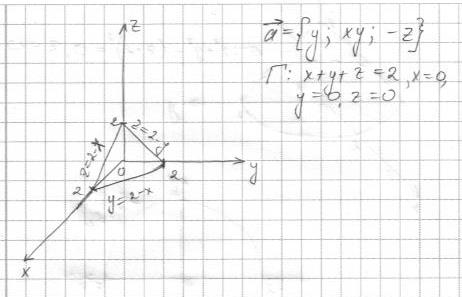 z
a⃗ = {y; xy; -z}
Г: x+y+z=2, x=0,
y=0, z=0
2
z=2-y
z=2-x
0
2
2
y
y=2-x
x